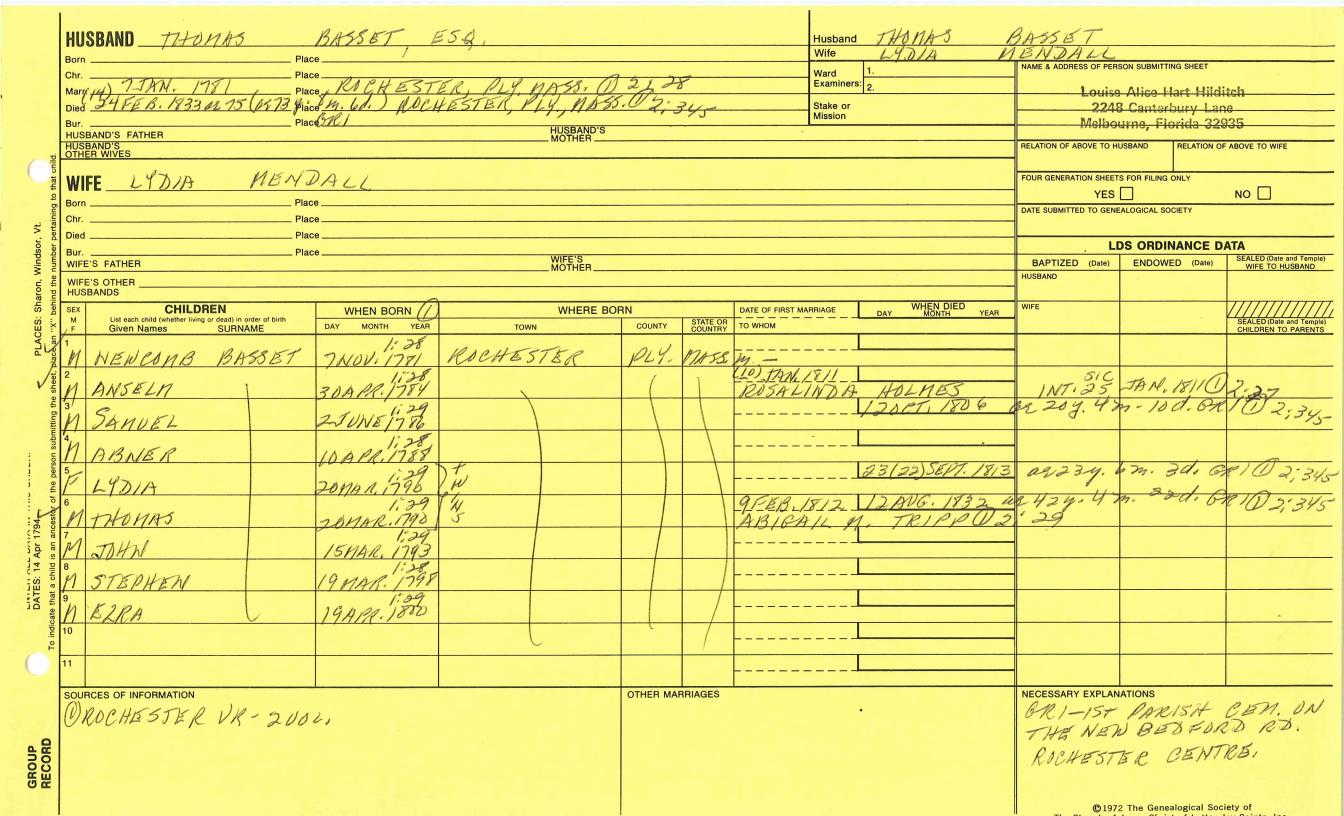 HUSBAND THOMAS BASSET, ESQ.
Born Place
Chr. Place
Marr. (14) 7 JAN. 1781 Place ROCHESTER, PLY, MASS. ① 2; 28
Died 24 FEB. 1833 ae 75 Place ROCHESTER, PLY, MASS. ① 2; 345
Bur. Place GR1
HUSBAND'S FATHER HUSBAND'S MOTHER
HUSBAND'S OTHER WIVES
Husband THOMAS BASSET
Wife LYDIA MENDALL
Ward Examiners: 1.
2.
Stake or Mission
NAME & ADDRESS OF PERSON SUBMITTING SHEET
Louise Alice Hart Hilditch
2248 Canterbury Lane
Melbourne, Florida 32935
RELATION OF ABOVE TO HUSBAND RELATION OF ABOVE TO WIFE
FOUR GENERATION SHEETS FOR FILING ONLY
YES NO
DATE SUBMITTED TO GENEALOGICAL SOCIETY
WIFE LYDIA MENDALL
Born Place
Chr. Place
Died Place
Bur. Place
WIFE'S FATHER WIFE'S MOTHER
WIFE'S OTHER HUSBANDS
LDS ORDINANCE DATA
BAPTIZED (Date) ENDOWED (Date) SEALED (Date and Temple) WIFE TO HUSBAND
HUSBAND
WIFE
SEALED (Date and Temple) CHILDREN TO PARENTS
SEX M F
CHILDREN
List each child (whether living or dead) in order of birth
Given Names SURNAME
WHEN BORN ①
DAY MONTH YEAR
WHERE BORN
TOWN COUNTY STATE OR COUNTRY
DATE OF FIRST MARRIAGE
TO WHOM
WHEN DIED
DAY MONTH YEAR
1 M NEWCOMB BASSET 7 NOV. 1781 1:28 ROCHESTER PLY. MASS m. —
2 M ANSELM 30 APR. 1784 1:28 (10) JAN. 1811 ROSALINDA HOLMES INT. 25 SIC JAN. 1811 ① 2:27
3 M SAMUEL 2 JUNE 1786 1:29 12 OPT. 1806 ae 20y. 4m. 10d. GR1 ① 2; 345
4 M ABNER 10 APR. 1788 1:28
5 F LYDIA 20 MAR. 1790 1:29 TWINS 23(22) SEPT. 1813 ae 23y. 6m. 3d. GR1 ① 2; 345
6 M THOMAS 20 MAR. 1790 1:29 9 FEB. 1812 12 AUG. 1832 ae 42y. 4m. 22d. GR1 ① 2; 345
ABIGAIL M. TRIPP ① 2: 29
7 M JOHN 15 MAR. 1793 1:29
8 M STEPHEN 19 MAR. 1798 1:28
9 M EZRA 19 APR. 1800 1:29
10
11
SOURCES OF INFORMATION
① ROCHESTER VR - 2 VOL.
OTHER MARRIAGES
NECESSARY EXPLANATIONS
GR1 - 1ST PARISH CEM. ON
THE NEW BEDFORD RD.
ROCHESTER CENTRE.
©1972 The Genealogical Society of
PLACES: Sharon, Windsor, Vt.
DATES: 14 Apr 1794
To indicate that a child is an ancestor of the person submitting the sheet, place an "X" behind the number pertaining to that child.
GROUP
RECORD